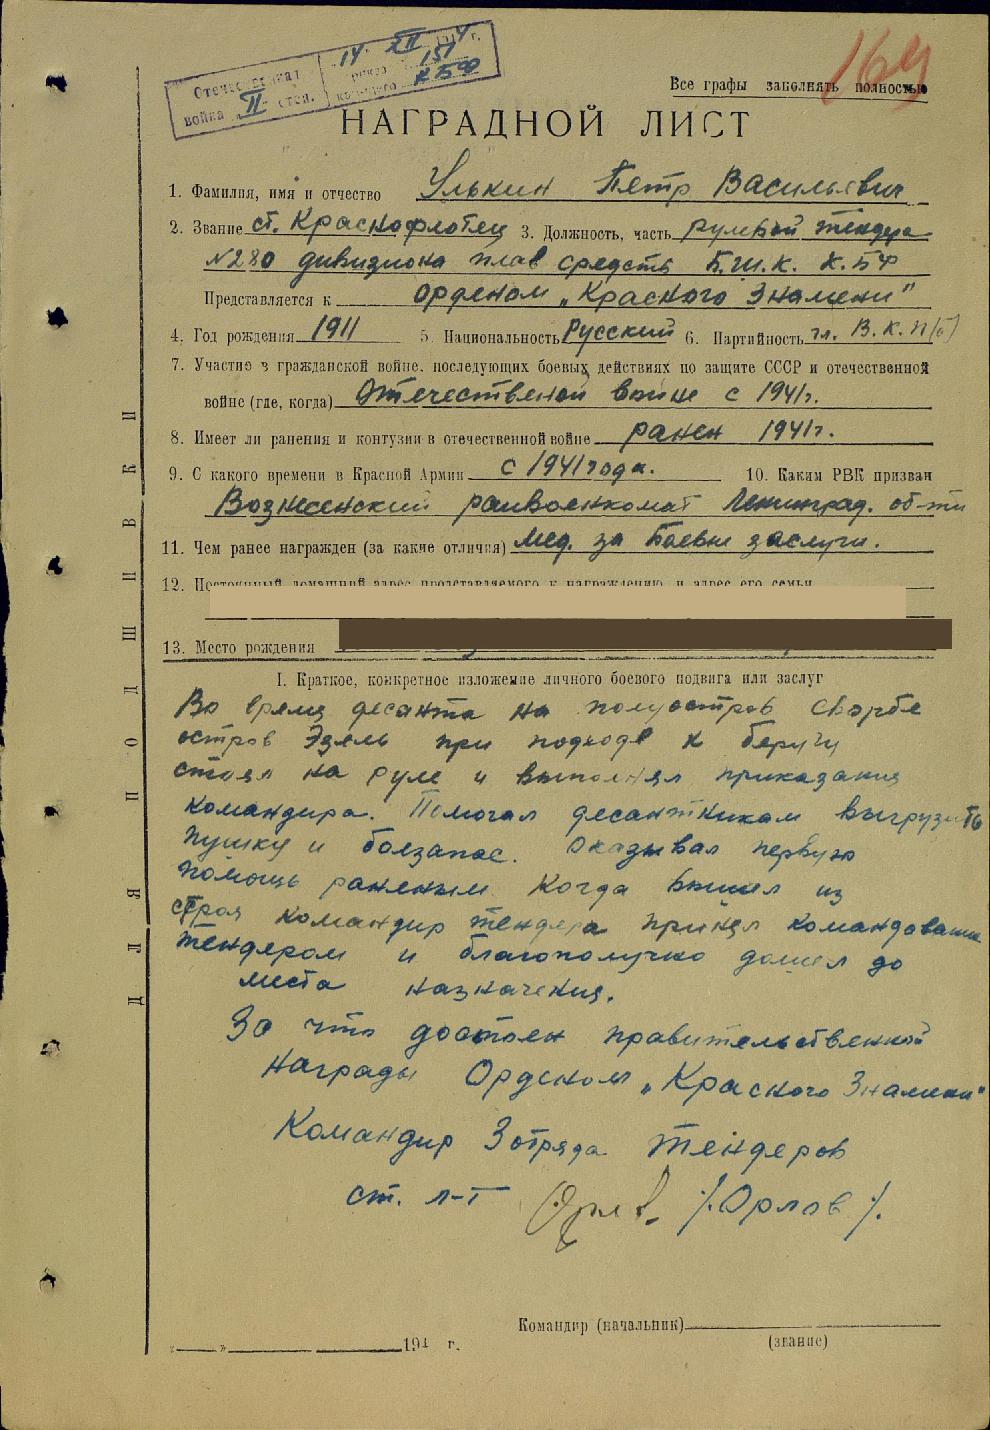 Отечественная
война II степ.
14 XII 1944 г.
приказ 151
КБФ
169
Все графы заполнять полностью
НАГРАДНОЙ ЛИСТ
1. Фамилия, имя и отчество Улькин Петр Васильевич
2. Звание ст. Краснофлотец 3. Должность, часть рулевой тендера
N280 дивизиона плав средств Б.Ш.К. К.БФ
Представляется к орденом „Красного Знамени"
4. Год рождения 1911 5. Национальность Русский 6. Партийность чл. В.К.П(б)
7. Участие в гражданской войне, последующих боевых действиях по защите СССР и отечественной
войне (где, когда) Отечественной войне с 1941г.
8. Имеет ли ранения и контузии в отечественной войне ранен 1941г.
9. С какого времени в Красной Армии с 1941 года. 10. Каким РВК призван
Вознесенский райвоенкомат Ленинград. об-ти
11. Чем ранее награжден (за какие отличия) Мед. за Боевые заслуги.
12. Постоянный домашний адрес представляемого к награждению и адрес его семьи
13. Место рождения
I. Краткое, конкретное изложение личного боевого подвига или заслуг
Во время десанта на полуостров Сворбе
остров Эзель при подходе к берегу
стоял на руле и выполнял приказания
командира. Помогал десантникам выгрузить
пушку и боезапас. Оказывал первую
помощь раненым. Когда вышел из
строя командир тендера принял командование
тендером и благополучно дошел до
места назначения.
За что достоен правительственной
награды Орденом „Красного Знамени"
Командир 3 отряда тендеров
ст. л-т Орлов /Орлов/.
Командир (начальник)
(звание)
„ " 194 г.
ДЛЯ ПОДШИВКИ